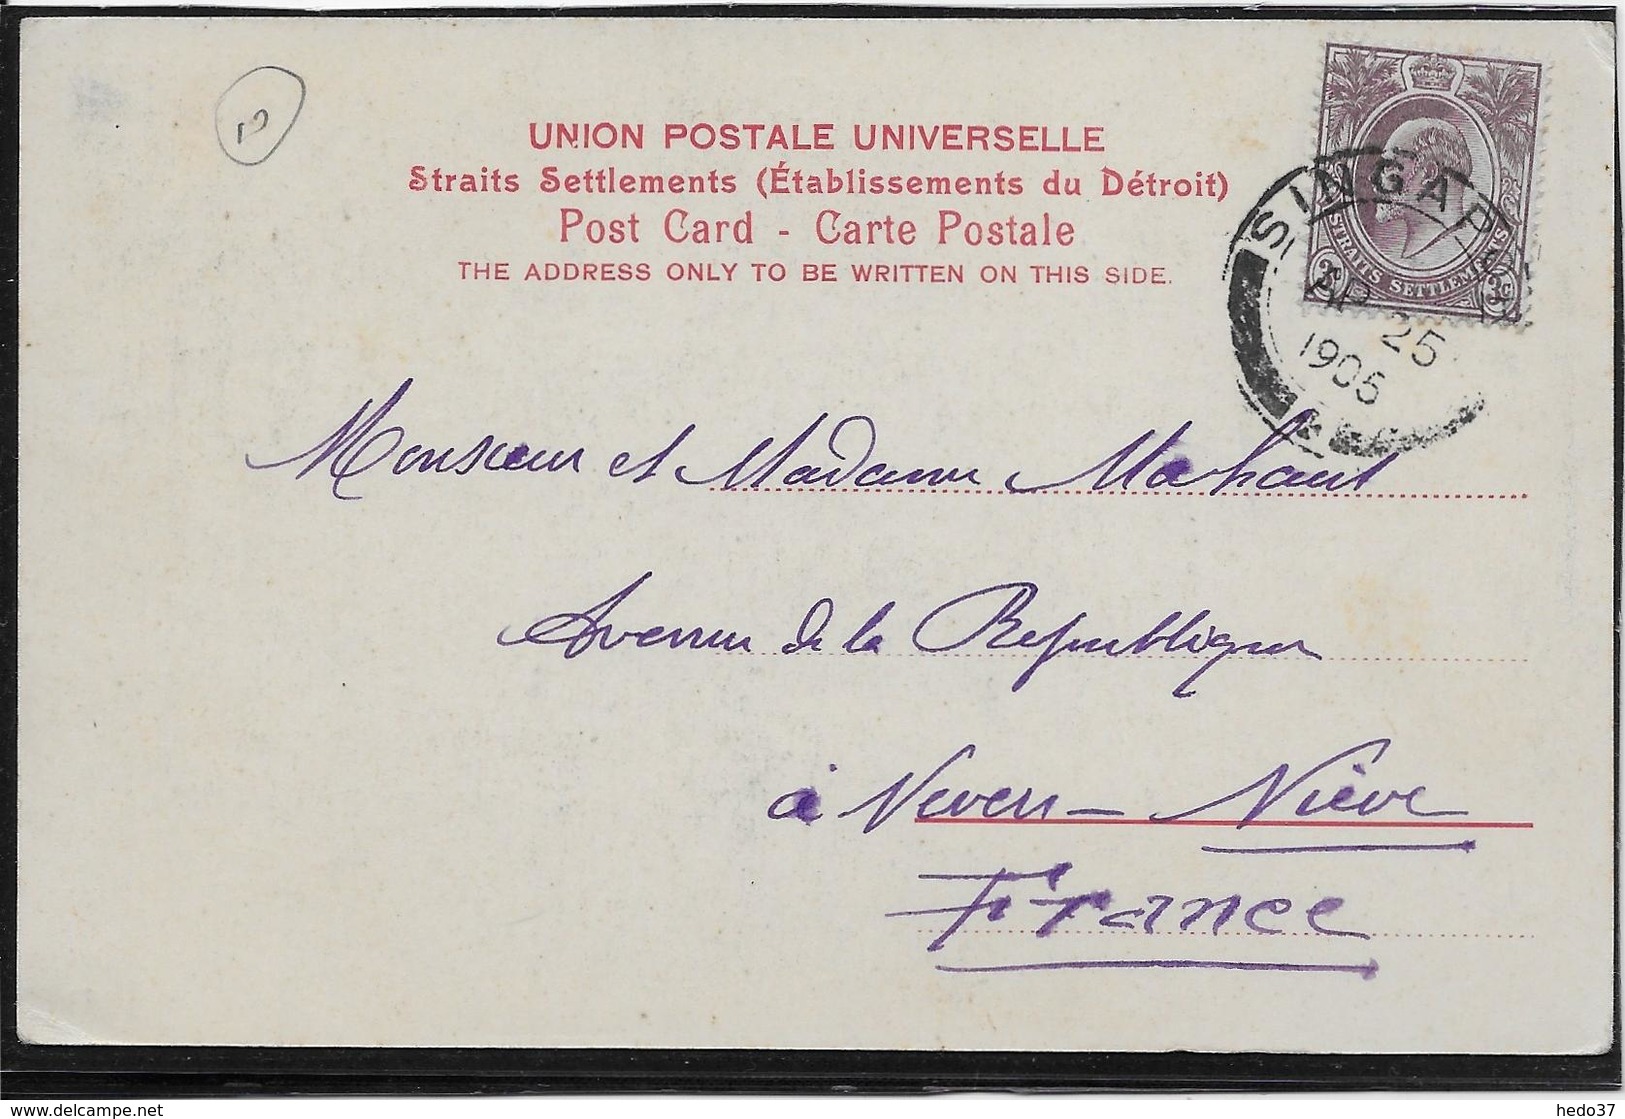 UNION POSTALE UNIVERSELLE
Straits Settlements (Établissements du Détroit)
Post Card - Carte Postale
THE ADDRESS ONLY TO BE WRITTEN ON THIS SIDE.
STRAITS SETTLEMENTS
3c 3c
SINGAPORE
AP 25
1905
Monsieur et Madame Mahaut
Avenue de la République
à Nevers - Niève
France
www.delcampe.net
hedo37